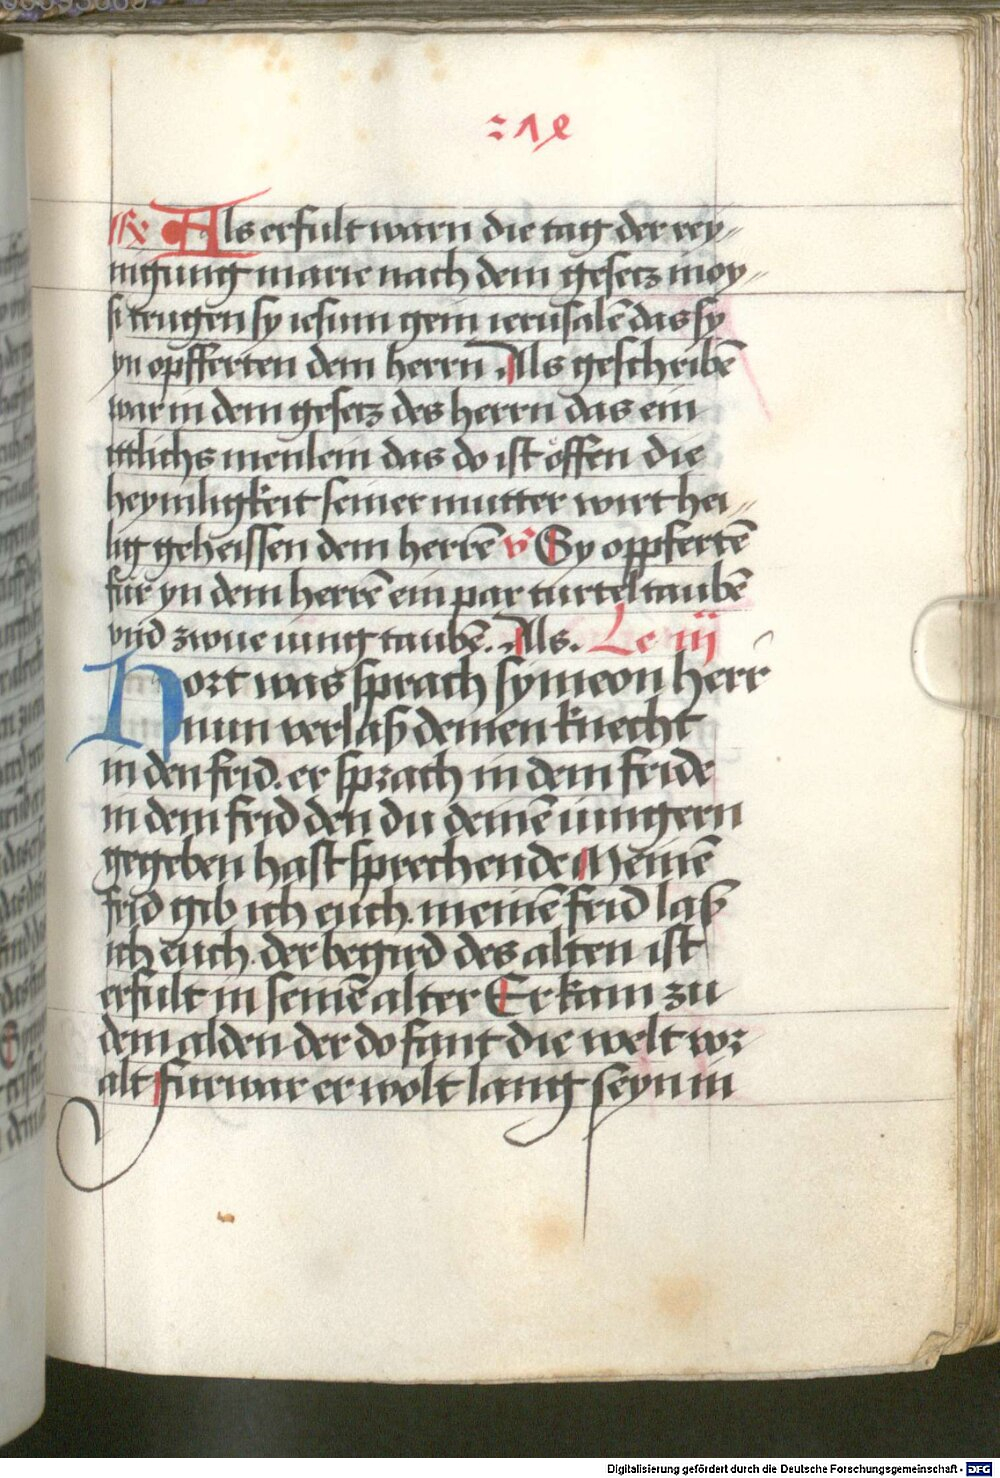 R Als erfult warn die tag der rey„
nigung marie nach dem gesetz moy„
si trugen sy iesum gein ierusalē das sy
yn opfferten dem herrn Als geschribē
war in dem gesetz des herrn das ein
ittlichs menlein das do ist öffen die
heymligkeit seiner mutter wirt hei„
lig geheissen dem herrē v Sy oppfertē
für yn dem herrē ein par turteltaubē
vnd zwue iung taubē. Als. Le iij
Hort was sprach symeon herr
nun verlaß deinen knecht
in den frid. er sprach in dem fride
in dem frid den du deinē iungern
gegeben hast sprechende Meinē
frid gib ich euch. meinē frid laß
ich euch. der begird des alten ist
erfult in seinē alter Er kam zu
dem alden der do fant die welt wz
alt furwar er wolt lang seyn in
Digitalisierung gefördert durch die Deutsche Forschungsgemeinschaft - DFG